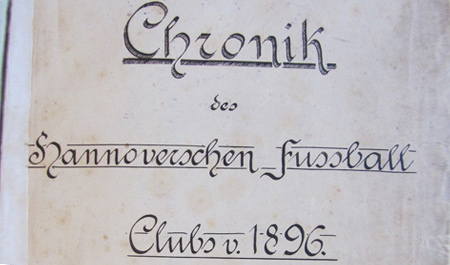 Chronik
des
Hannoverschen Fussball
Clubs v. 1896.